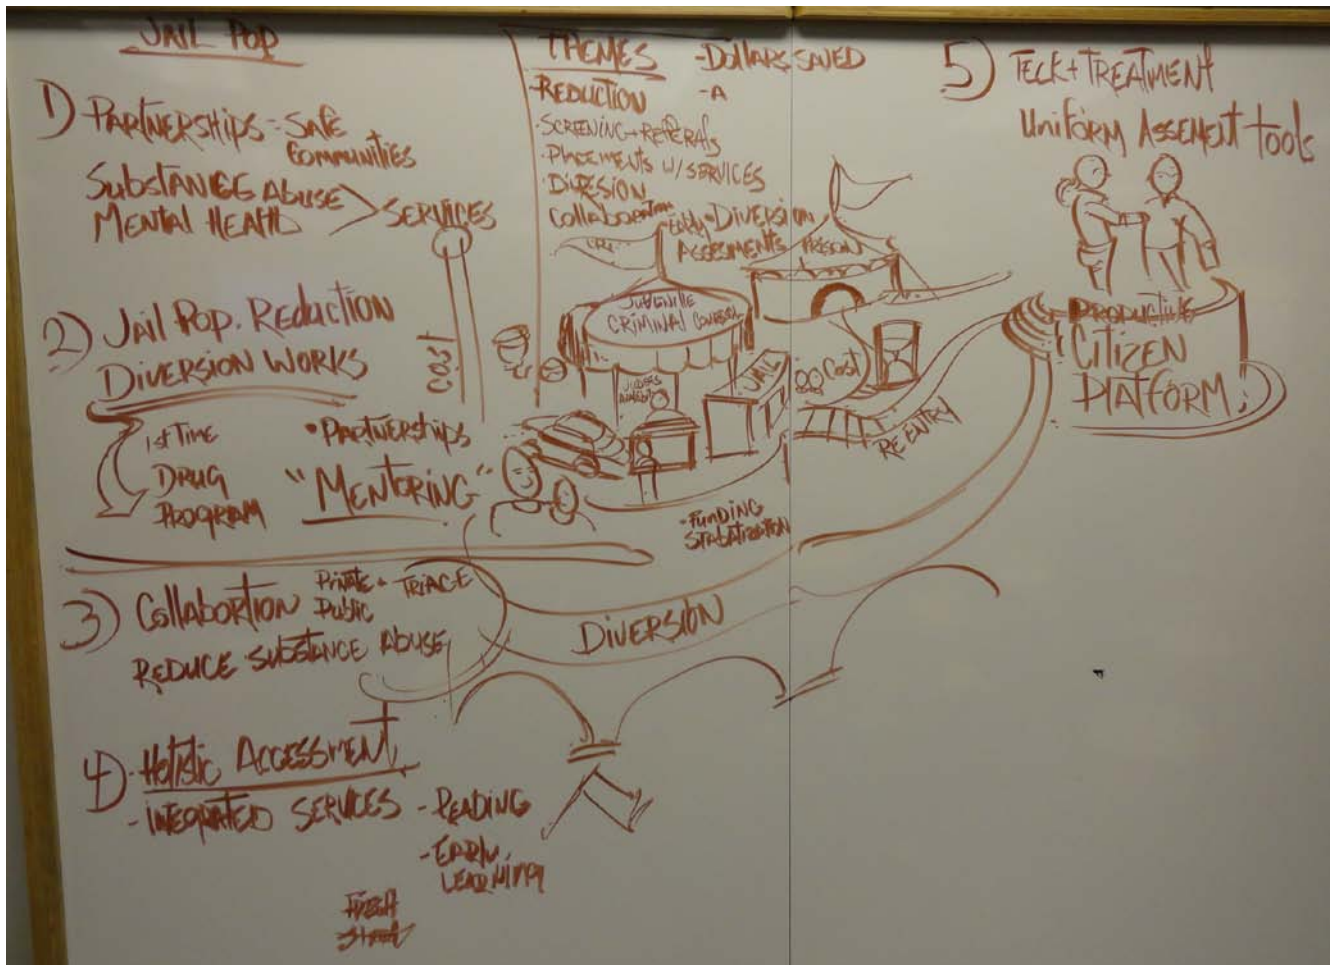 JAIL POP
1) PARTNERSHIPS = SAFE
COMMUNITIES
SUBSTANCE ABUSE
MENTAL HEALTH > SERVICES
2) JAIL POP. REDUCTION
DIVERSION WORKS
1ST TIME
DRUG
PROGRAM
• PARTNERSHIPS
"MENTORING"
COST
3) COLLABORTION PRIVATE + TRIAGE
PUBLIC
REDUCE SUBSTANCE ABUSE
4) HOLISTIC ACCESSMENT
- INTEGRATED SERVICES - READING
- EARLY
LEARNING
FRESH
THEMES - DOLLARS SAVED
- REDUCTION - A
• SCREENING + REFERALS
• PLACEMENTS W/ SERVICES
• DIVERSION
COLLABORATION
EARLY • DIVERSION
ASSESMENTS
PRISON
JUVENILE
CRIMINAL
JUDGES
JAIL
COST
RE ENTRY
- FUNDING
STABATIZATION
DIVERSION
5) TECK + TREATMENT
UNIFORM ASSEMENT TOOLS
PRODUCTIVE
CITIZEN
PLATFORM